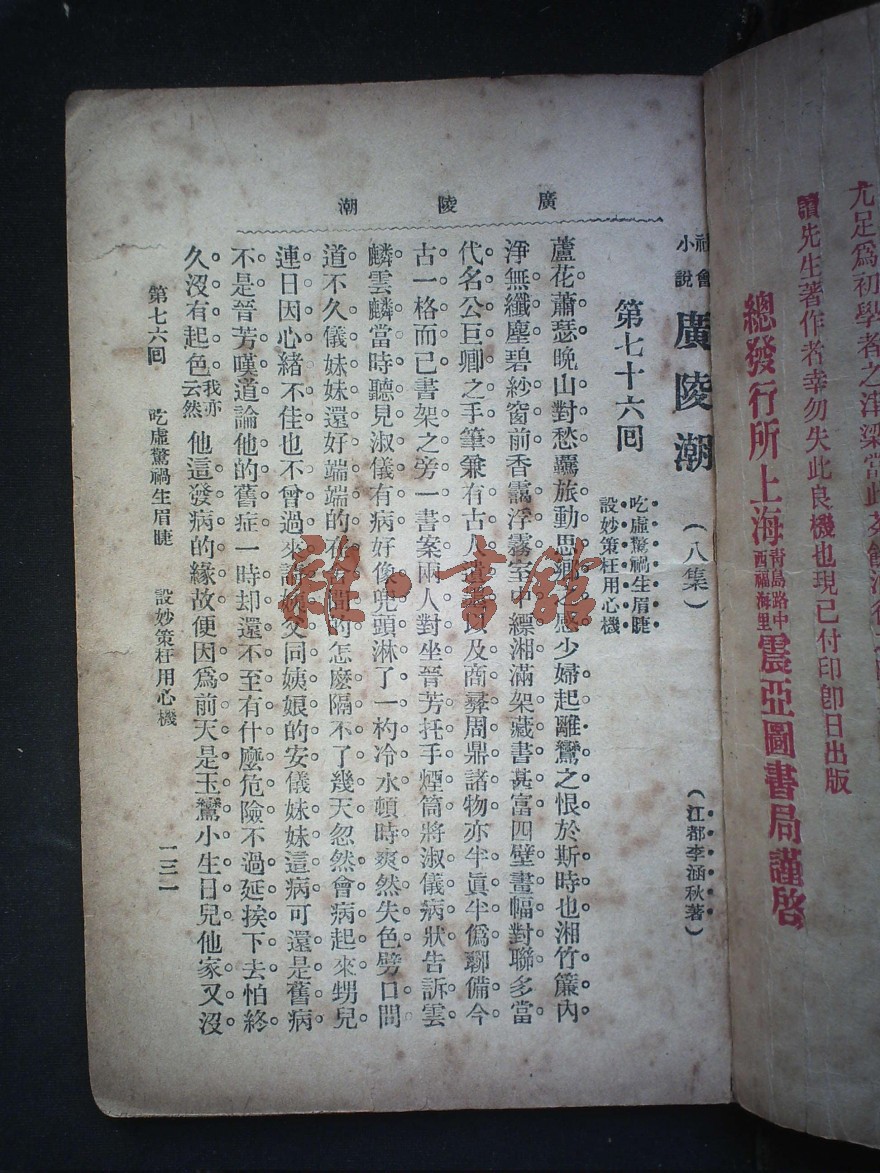 尤足爲初學者之津梁當此
讀先生著作者幸勿失此良機也現已付印卽日出版
總發行所上海青島路中西福海里震亞圖書局謹啓
廣陵潮
社會小說 廣陵潮 (八集) (江都李涵秋著)
第七十六回 吃虛驚禍生眉睫 設妙策枉用心機
蘆花蕭瑟晚山對愁羈旅動思鄉之感少婦起離鸞之恨於斯時也湘竹簾內
淨無纖塵碧紗窗前香靄浮霧室中縹湘滿架藏書甚富四壁畫幅對聯多當
代名公巨卿之手筆兼有古人遺墨以及商彝周鼎諸物亦半眞半僞聊備今
古一格而已書架之旁一書案兩人對坐晉芳托手煙筒將淑儀病狀告訴雲
麟雲麟當時聽見淑儀有病好像兜頭淋了一杓冷水頓時爽然失色劈口問
道不久儀妹妹還好端端的在 的怎麼隔不了幾天忽然會病起來甥兒
連日因心緒不佳也不曾過來 父同姨娘的安儀妹妹這病可還是舊病
不是晉芳嘆道論他的舊症一時却還不至有什麼危險不過延挨下去怕終
久沒有起色我亦云然他這發病的緣故便因爲前天是玉鸞小生日兒他家又沒
第七六回 吃虛驚禍生眉睫 設妙策枉用心機 一三一
雜·書館